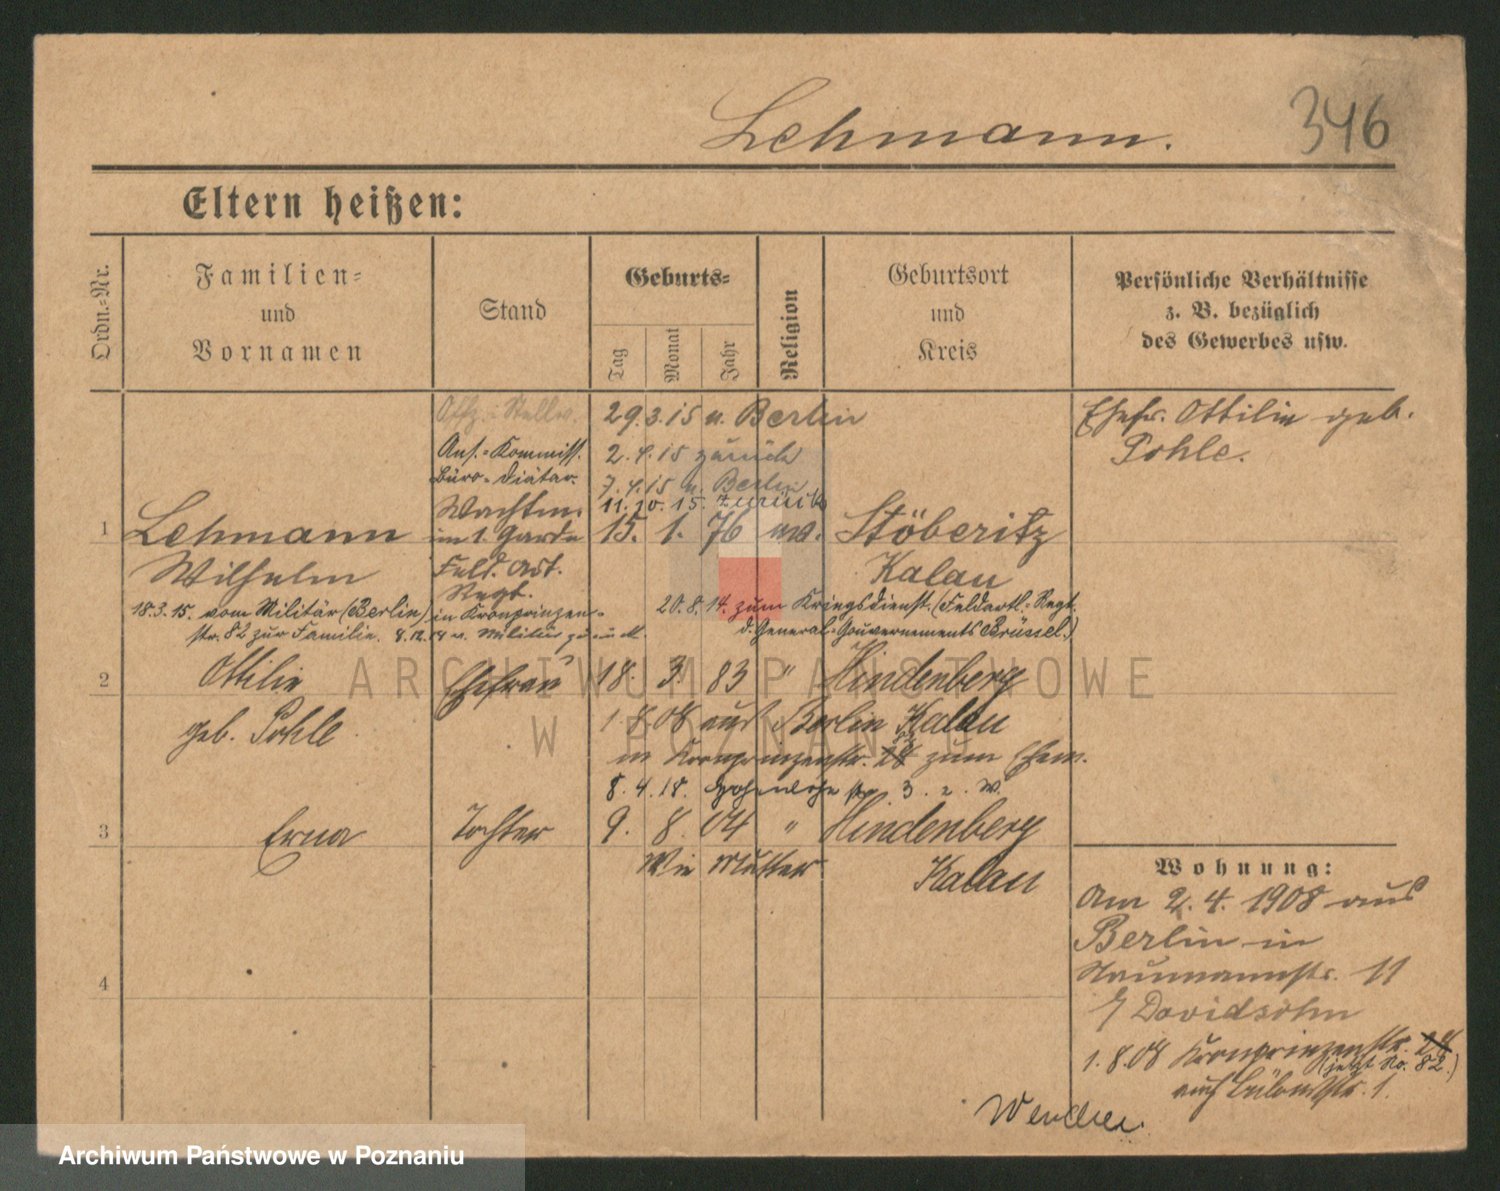 Lehmann.
346
Eltern heißen:
Ordn.-Nr.
Familien-
und
Vornamen
Stand
Geburts-
Tag
Monat
Jahr
Religion
Geburtsort
und
Kreis
Persönliche Verhältnisse
z. B. bezüglich
des Gewerbes usw.
Offz.-Stellv.
29.3.15 n. Berlin
Ehefr. Ottilie geb.
Pohle.
Ans.-Kommiss.
Büro-Diätar.
2.4.15 zurück
7.4.15 n. Berlin
11.10.15. zurück
Wachtm.
1 Lehmann im 1. Garde 15. 1. 76 Stöberitz
Wilhelm Feld. Art. Kalau
Regt.
18.3.15. vom Militär (Berlin) in Kronprinzen-
str. 82 zur Familie. 8.12.18 v. Militär zurück.
20.8.14. zum Kriegsdienst (Feldartl.-Regt.
d. General-Gouvernements Brüssel.)
2 Ottilie Ehefrau 18. 3. 83 " Hindenberg
geb. Pohle Kalau
1 8 08 aus Berlin
in Kronprinzenstr. zum Ehem.
8.4.18. Hohenlohestr. 3.
3 Erna Tochter 9. 8. 04 " Hindenberg
Wie Mutter Kalau
4
Wohnung:
Am 2.4.1908 aus
Berlin in
Naumannstr. 11
Davidsohn
1.8.08 Kronprinzenstr. 24
(jetzt No. 82.)
auch Bülowstr. 1.
ARCHIWUM PAŃSTWOWE
W POZNANIU
Archiwum Państwowe w Poznaniu